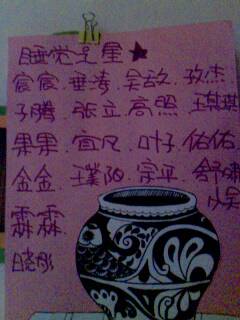 睡觉之星★
宸宸.垂涛.吴敌.孜杰
子腾.张立.高照.王琪琪
果果.宜凡.叶子.佑佑
金金.王璞阳.宗平.舒
霖霖
晓彤